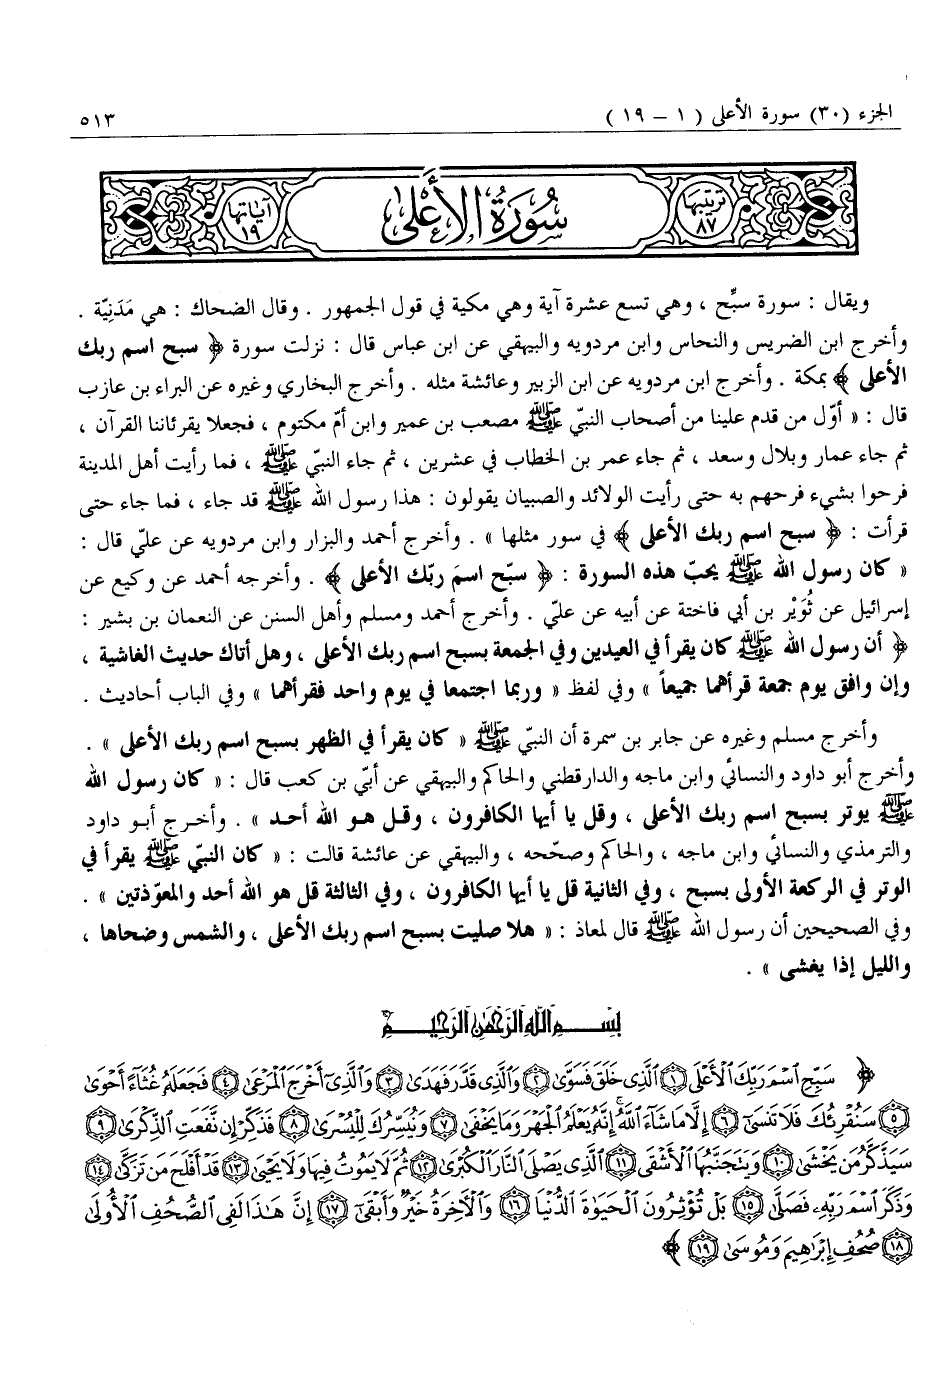 الجزء (٣٠) سورة الأعلى ( ١ – ١٩ ) ٥١٣
ترتيبها ٨٧ سُورَةُ الأَعْلَى آياتها ١٩
ويقال : سورة سبِّح ، وهي تسع عشرة آية وهي مكية في قول الجمهور . وقال الضحاك : هي مَدَنِيّة .
وأخرج ابن الضريس والنحاس وابن مردويه والبيهقي عن ابن عباس قال : نزلت سورة ﴿ سبح اسم ربك
الأعلى ﴾ بمكة . وأخرج ابن مردويه عن ابن الزبير وعائشة مثله . وأخرج البخاري وغيره عن البراء بن عازب
قال : « أوّل من قدم علينا من أصحاب النبيّ ﷺ مصعب بن عمير وابن أمّ مكتوم ، فجعلا يقرئاننا القرآن ،
ثم جاء عمار وبلال وسعد ، ثم جاء عمر بن الخطاب في عشرين ، ثم جاء النبيّ ﷺ ، فما رأيت أهل المدينة
فرحوا بشيء فرحهم به حتى رأيت الولائد والصبيان يقولون : هذا رسول الله ﷺ قد جاء ، فما جاء حتى
قرأت : ﴿ سبح اسم ربك الأعلى ﴾ في سور مثلها » . وأخرج أحمد والبزار وابن مردويه عن عليّ قال :
« كان رسول الله ﷺ يحبّ هذه السورة : ﴿ سبّح اسمَ ربّك الأعلى ﴾ . وأخرجه أحمد عن وكيع عن
إسرائيل عن ثُوَيْر بن أبي فاختة عن أبيه عن عليّ . وأخرج أحمد ومسلم وأهل السنن عن النعمان بن بشير :
﴿ أن رسول الله ﷺ كان يقرأ في العيدين وفي الجمعة بسبح اسم ربك الأعلى ، وهل أتاك حديث الغاشية ،
وإن وافق يوم جمعة قرأهما جميعاً » وفي لفظ « وربما اجتمعا في يوم واحد فقرأهما » وفي الباب أحاديث .
وأخرج مسلم وغيره عن جابر بن سمرة أن النبيّ ﷺ « كان يقرأ في الظهر بسبح اسم ربك الأعلى » .
وأخرج أبو داود والنسائي وابن ماجه والدارقطني والحاكم والبيهقي عن أبيّ بن كعب قال : « كان رسول الله
ﷺ يوتر بسبح اسم ربك الأعلى ، وقل يا أيها الكافرون ، وقـل هـو الله أحـد » . وأخـرج أبـو داود
والترمذي والنسائي وابن ماجه ، والحاكم وصحّحه ، والبيهقي عن عائشة قالت : « كان النبيّ ﷺ يقرأ في
الوتر في الركعة الأولى بسبح ، وفي الثانية قل يا أيها الكافرون ، وفي الثالثة قل هو الله أحد والمعوّذتين » .
وفي الصحيحين أن رسول الله ﷺ قال لمعاذ : « هلا صليت بسبح اسم ربك الأعلى ، والشمس وضحاها ،
والليل إذا يغشى » .
بِسْمِ ٱللَّهِ ٱلرَّحْمَٰنِ ٱلرَّحِيمِ
﴿ سَبِّحِ ٱسْمَ رَبِّكَ ٱلْأَعْلَى ١ ٱلَّذِى خَلَقَ فَسَوَّىٰ ٢ وَٱلَّذِى قَدَّرَ فَهَدَىٰ ٣ وَٱلَّذِىٓ أَخْرَجَ ٱلْمَرْعَىٰ ٤ فَجَعَلَهُۥ غُثَآءً أَحْوَىٰ
٥ سَنُقْرِئُكَ فَلَا تَنسَىٰٓ ٦ إِلَّا مَا شَآءَ ٱللَّهُ ۚ إِنَّهُۥ يَعْلَمُ ٱلْجَهْرَ وَمَا يَخْفَىٰ ٧ وَنُيَسِّرُكَ لِلْيُسْرَىٰ ٨ فَذَكِّرْ إِن نَّفَعَتِ ٱلذِّكْرَىٰ ٩
سَيَذَّكَّرُ مَن يَخْشَىٰ ١٠ وَيَتَجَنَّبُهَا ٱلْأَشْقَى ١١ ٱلَّذِى يَصْلَى ٱلنَّارَ ٱلْكُبْرَىٰ ١٢ ثُمَّ لَا يَمُوتُ فِيهَا وَلَا يَحْيَىٰ ١٣ قَدْ أَفْلَحَ مَن تَزَكَّىٰ ١٤
وَذَكَرَ ٱسْمَ رَبِّهِۦ فَصَلَّىٰ ١٥ بَلْ تُؤْثِرُونَ ٱلْحَيَوٰةَ ٱلدُّنْيَا ١٦ وَٱلْأَخِرَةُ خَيْرٌ وَأَبْقَىٰٓ ١٧ إِنَّ هَٰذَا لَفِى ٱلصُّحُفِ ٱلْأُولَىٰ
١٨ صُحُفِ إِبْرَٰهِيمَ وَمُوسَىٰ ١٩ ﴾